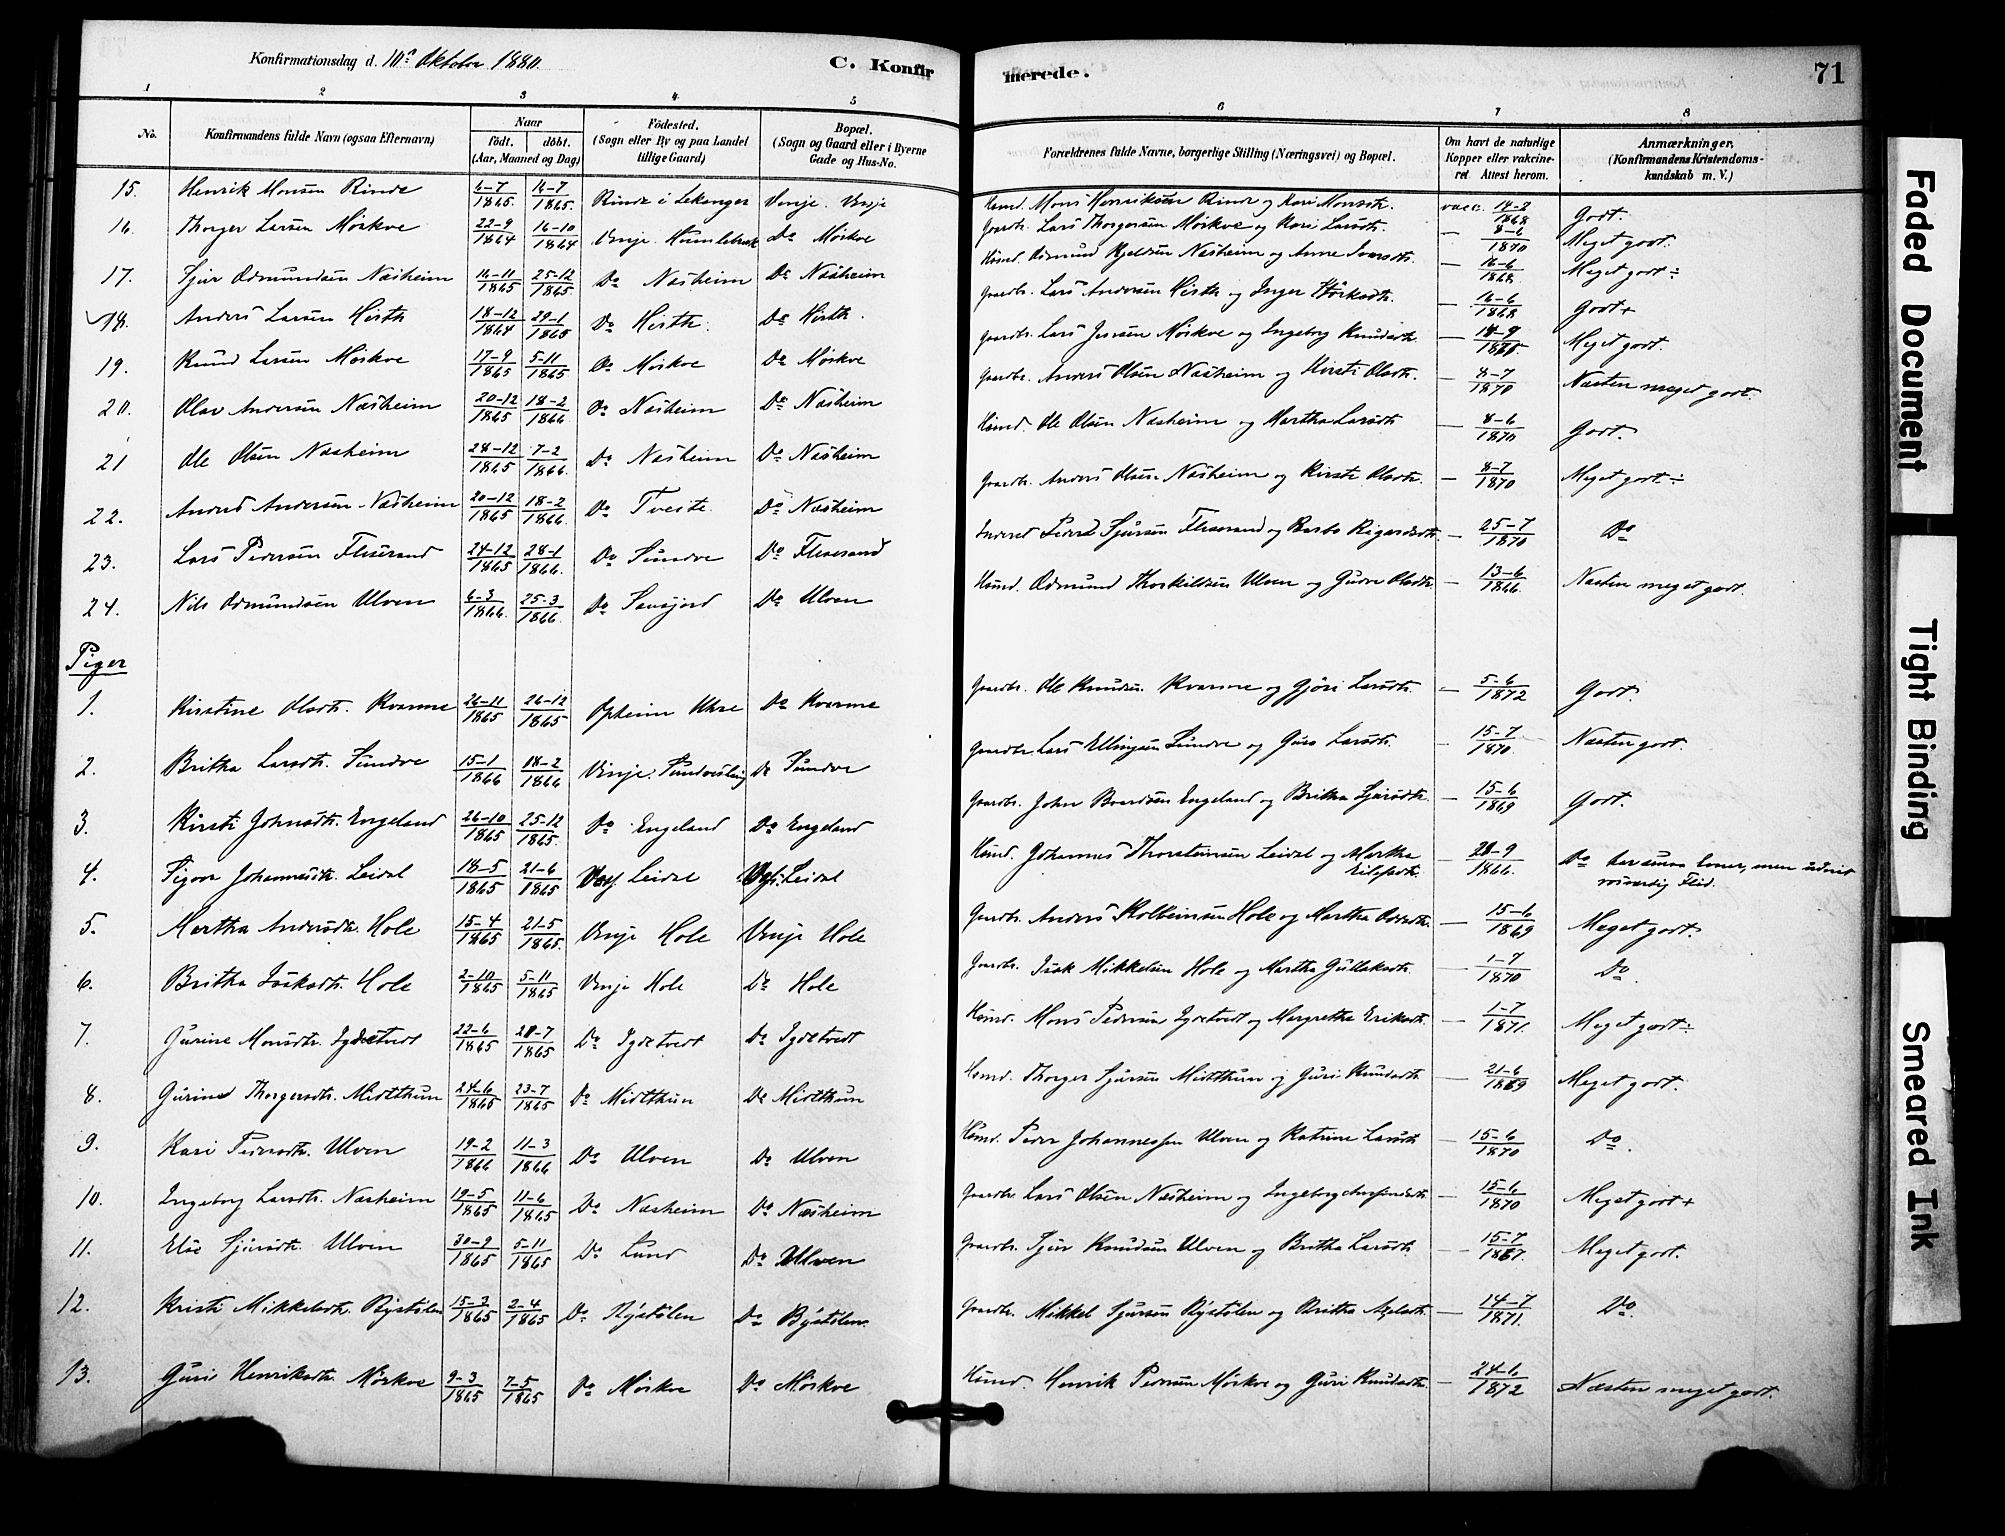 Konfirmationsdag d. 10de Oktober 1880.
C. Konfirmerede.
71
1 2 3 4 5 6 7 8
No.
Konfirmandens fulde Navn (ogsaa Efternavn)
Naar
født. døbt.
(Aar, Maaned og Dag)
Fødested.
(Sogn eller By og paa Landet tillige Gaard)
Bopæl.
(Sogn og Gaard eller i Byerne Gade og Hus-No.
Forældrenes fulde Navne, borgerlige Stilling (Næringsvei) og Bopæl.
Om havt de naturlige Kopper eller vakcineret. Attest herom.
Anmærkninger,
(Konfirmandens Kristendomskundskab m. V.)
15. Henrik Monsen Rinde 6-7 1865. 14-7 1865. Rinde i Lekanger Vinje. Vinje Husmd. Mons Henriksen Rinde og Kari Monsdtr. vacc. 14-2 1868 Godt.
16. Thorger Larsen Mørkve 22-9 1864 16-10 1864 Vinje Do Mørkve Gaardbr. Lars Thorgersen Mørkve og Kari Larsdtr. — 8-6 1870 Meget godt.
17. Sjur Odmundsen Næsheim 14-11 1865 25-12 1865 Do Næsheim Do Næsheim Husmd. Odmund Næsheim og Anne Ivarsdtr. — 16-6 1868. Meget godt ÷
18. Anders Larsen Hirth 18-12 1864 29-1 1865 Do Hirth. Do Hirth. Gaardbr. Lars Andersen Hirth og Inger — 16-6 1868 Godt +
19. Knud Larsen Mørkve 17-9 1865 5-11 1865 Do Mørkve Do Mørkve Gaardbr. Lars Mørkve og Ingeborg Knudsdtr. — 14-9 Meget godt.
20. Olav Andersen Næsheim 20-12 1865 18-2 1866 Do Næsheim Do Næsheim Gaardbr. Anders Olsen Næsheim og Kirsti Olsdtr. — 8-7 1870 Næsten meget godt.
21 Ole Olsen Næsheim 28-12 1865 7-2 1866. Do Næsheim Do Næsheim Husmd. Ole Olsen Næsheim og Martha Larsdtr — 8-6 1870 Godt.
22. Anders Andersen Næsheim 20-12 1865 18-2 1866. Do Tveite. Do Næsheim Gaardbr. Anders Olsen Næsheim og Kirsti Olsdtr. — 8-7 1870 Meget godt ÷
23. Lars Pedersen Fliserand 24-12 1865 28-1 1866. Do Sundve Do Fliserand Inderst Peder Sjursen Fliserand og Barbo — 25-7 1870 Do
24. Nils Odmundsen Ulven 6-3 1866. 25-3 1866 Do Do Ulven Husmd. Odmund Thorkildsen Ulven og Guro Olsdtr. — 13-6 1866. Næsten meget godt.
Piger
1. Kirstine Olsdtr. Kvarme 26-11 1865 26-12 1865 Opheim Do Kvarme Gaardbr. Ole Knudsen Kvarme og Gjøri Larsdtr. — 5-6 1872 Godt.
2. Britha Larsdtr. Sundve 15-1 1866 18-2 1866 Vinje. Do Sundve Gaardbr Lars Ellingsen Sundve og Guro Larsdtr. — 15-7 1870. Næsten godt.
3. Kirsti Johnsdtr. Engeland 26-10 1865 25-12 1865. Do Engeland Do Engeland Gaardbr. John Baardsen Engeland og Britha Sjursdtr. — 15-6 1869 Godt.
4. Sigvor Johannesdtr. Leidal 18-5 1865 21-6 1865 Leidal Leidal Husmd. Johannes Thorsteinsen Leidal og Martha Eilifsdtr. — 28-9 1866. Do har smaa Evner, men udvist rosværdig Flid.
5. Martha Andersdtr. Hole 15-4 1865 21-5 1865 Vinje Hole Vinje Hole Gaardbr. Anders Kolbeinsen Hole og Martha — 15-6 1869 Meget godt.
6. Britha Isaksdtr. Hole 2-10 1865 5-11 1865 Vinje Hole Do Hole Gaardbr. Isak Mikkelsen Hole og Martha Gullaksdtr. — 1-7 1870 Do.
7. Gurine Monsdtr. Sydetvedt 22-6 1865 28-7 1865 Do Sydetvedt Do Sydetvedt Husmd. Mons Pedersen Sydetvedt og Margretha Eriksdtr. — 1-7 1871. Meget godt ÷
8. Gurine Thorgersdtr. Midtthun 24-6 1865 23-7 1865 Do Midtthun Do Midtthun Husmd. Thorger Sjursen Midtthun og Guri Knudsdtr. — 21-6 1869 Meget godt.
9. Kari Pedersdtr. Ulven 19-2 1866 11-3 1866 Do Ulven Do Ulven Husmd. Peder Johannessen Ulven og Katrine Larsdtr. — 15-6 1870 Do.
10. Ingeborg Larsdtr. Næsheim 19-5 1865 11-6 1865 Do Næsheim Do Næsheim Gaardbr. Lars Olsen Næsheim og Ingeborg — 15-6 1870 Meget godt +
11. Else Sjursdtr. Ulven 30-9 1865 5-11 1865 Do Lund Do Ulven Gaardbr. Sjur Knudsen Ulven og Britha Larsdtr. — 15-7 1867. Meget godt.
12. Kristi Mikkelsdtr. Bystølen 15-3 1865 2-4 1865 Do Bystølen Do Bystølen. Gaardbr. Mikkel Sjursen Bystølen og Britha — 14-7 1871. Do.
13. Guri Henriksdtr. Mørkve 9-3 1865 7-5 1865 Do Mørkve Do Mørkve Husmd. Henrik Pedersen Mørkve og Guri Knudsdtr. — 24-6 1872 Næsten meget godt.
Faded Document
Tight Binding
Smeared Ink